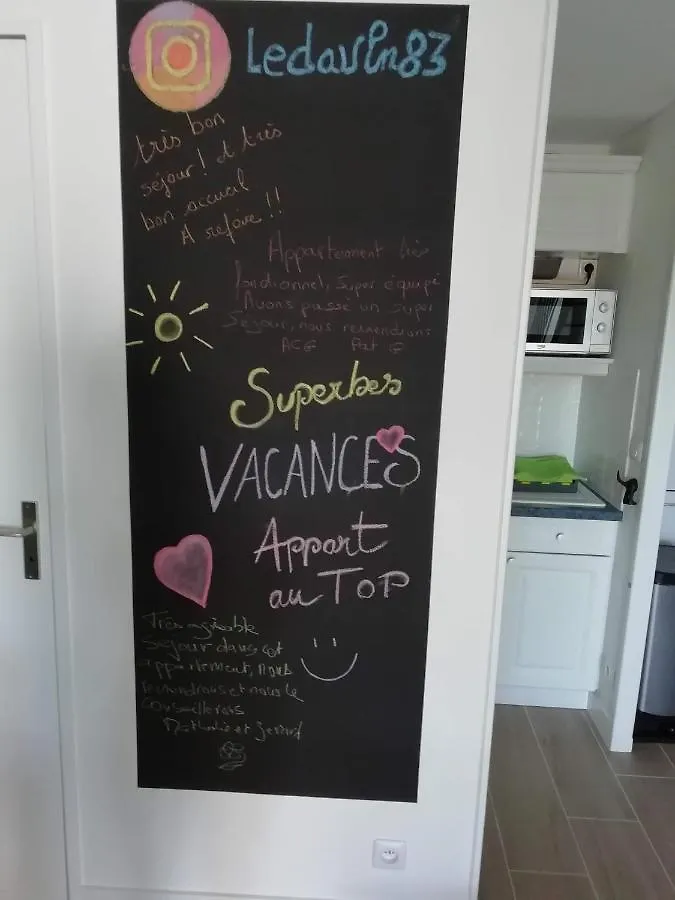 Ledavin83
très bon
séjour ! et très
bon accueil
A refaire !!
Appartement très
fonctionnel, super équipé
Avons passé un super
Séjour, nous reviendrons
Pat G
Superbes
VACANCES
Appart
au TOP
Très agréable
séjour dans cet
appartement, nous
reviendrons et nous le
conseillerons
Nathalie et